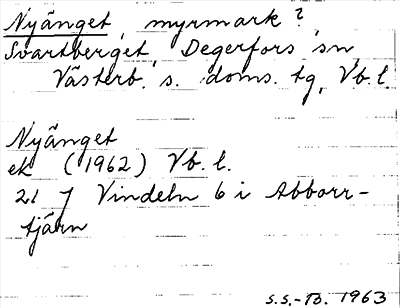 Nyänget, myrmark?
Svartberget, Degerfors sn,
Västerb. s. doms. tg, Vb. l.
Nyänget
ek (1962) Vb. l.
21 7 Vindeln 6 i Abborr-
tjärn
S.S.-Bo. 1963